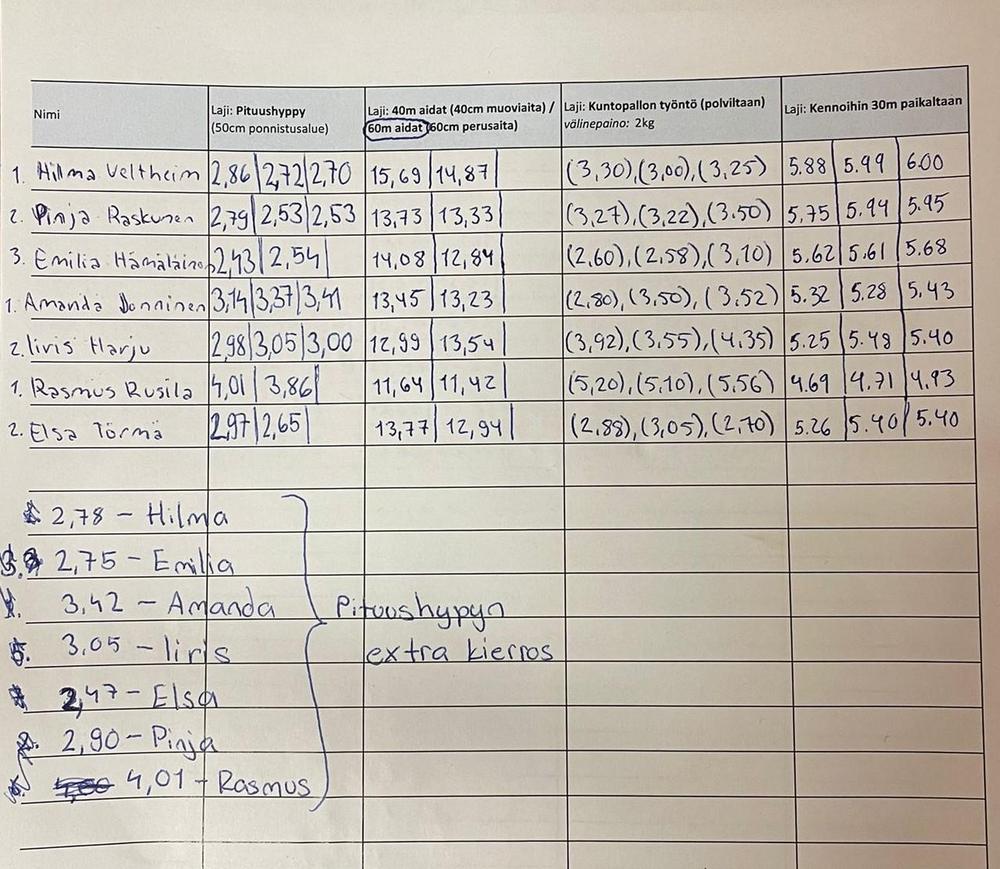 Nimi
Laji: Pituushyppy
(50cm ponnistusalue)
Laji: 40m aidat (40cm muoviaita) /
60m aidat (60cm perusaita)
Laji: Kuntopallon työntö (polviltaan)
välinepaino: 2kg
Laji: Kennoihin 30m paikaltaan
1. Hilma Veltheim 2,86 | 2,72 | 2,70 15,69 | 14,87 | (3,30), (3,00), (3,25) 5.88 | 5.99 | 6.00
2. Pinja Raskunen 2,79 | 2,53 | 2,53 13,73 | 13,33 | (3,27), (3,22), (3.50) 5,75 | 5.94 | 5.95
3. Emilia Hämäläinen 2,43 | 2,54 | 14,08 | 12,84 | (2,60), (2,58), (3,10) 5.62 | 5.61 | 5.68
1. Amanda Jonninen 3,14 | 3,37 | 3,41 13,45 | 13,23 | (2,80), (3,50), (3,52) 5.32 | 5.28 | 5.43
2. Iiris Harju 2,98 | 3,05 | 3,00 12,99 | 13,54 | (3,92), (3,55), (4,35) 5.25 | 5.48 | 5.40
1. Rasmus Rusila 4,01 | 3,86 | 11,64 | 11,42 | (5,20), (5,10), (5,56) 4.69 | 4.71 | 4.93
2. Elsa Törmä 2,97 | 2,65 | 13,77 | 12,94 | (2,88), (3,05), (2,70) 5.26 | 5.40 | 5.40
2,78 – Hilma
2,75 – Emilia
3,42 – Amanda
3,05 – Iiris
2,47 – Elsa
2,90 – Pinja
4,01 – Rasmus
Pituushypyn
extra kierros